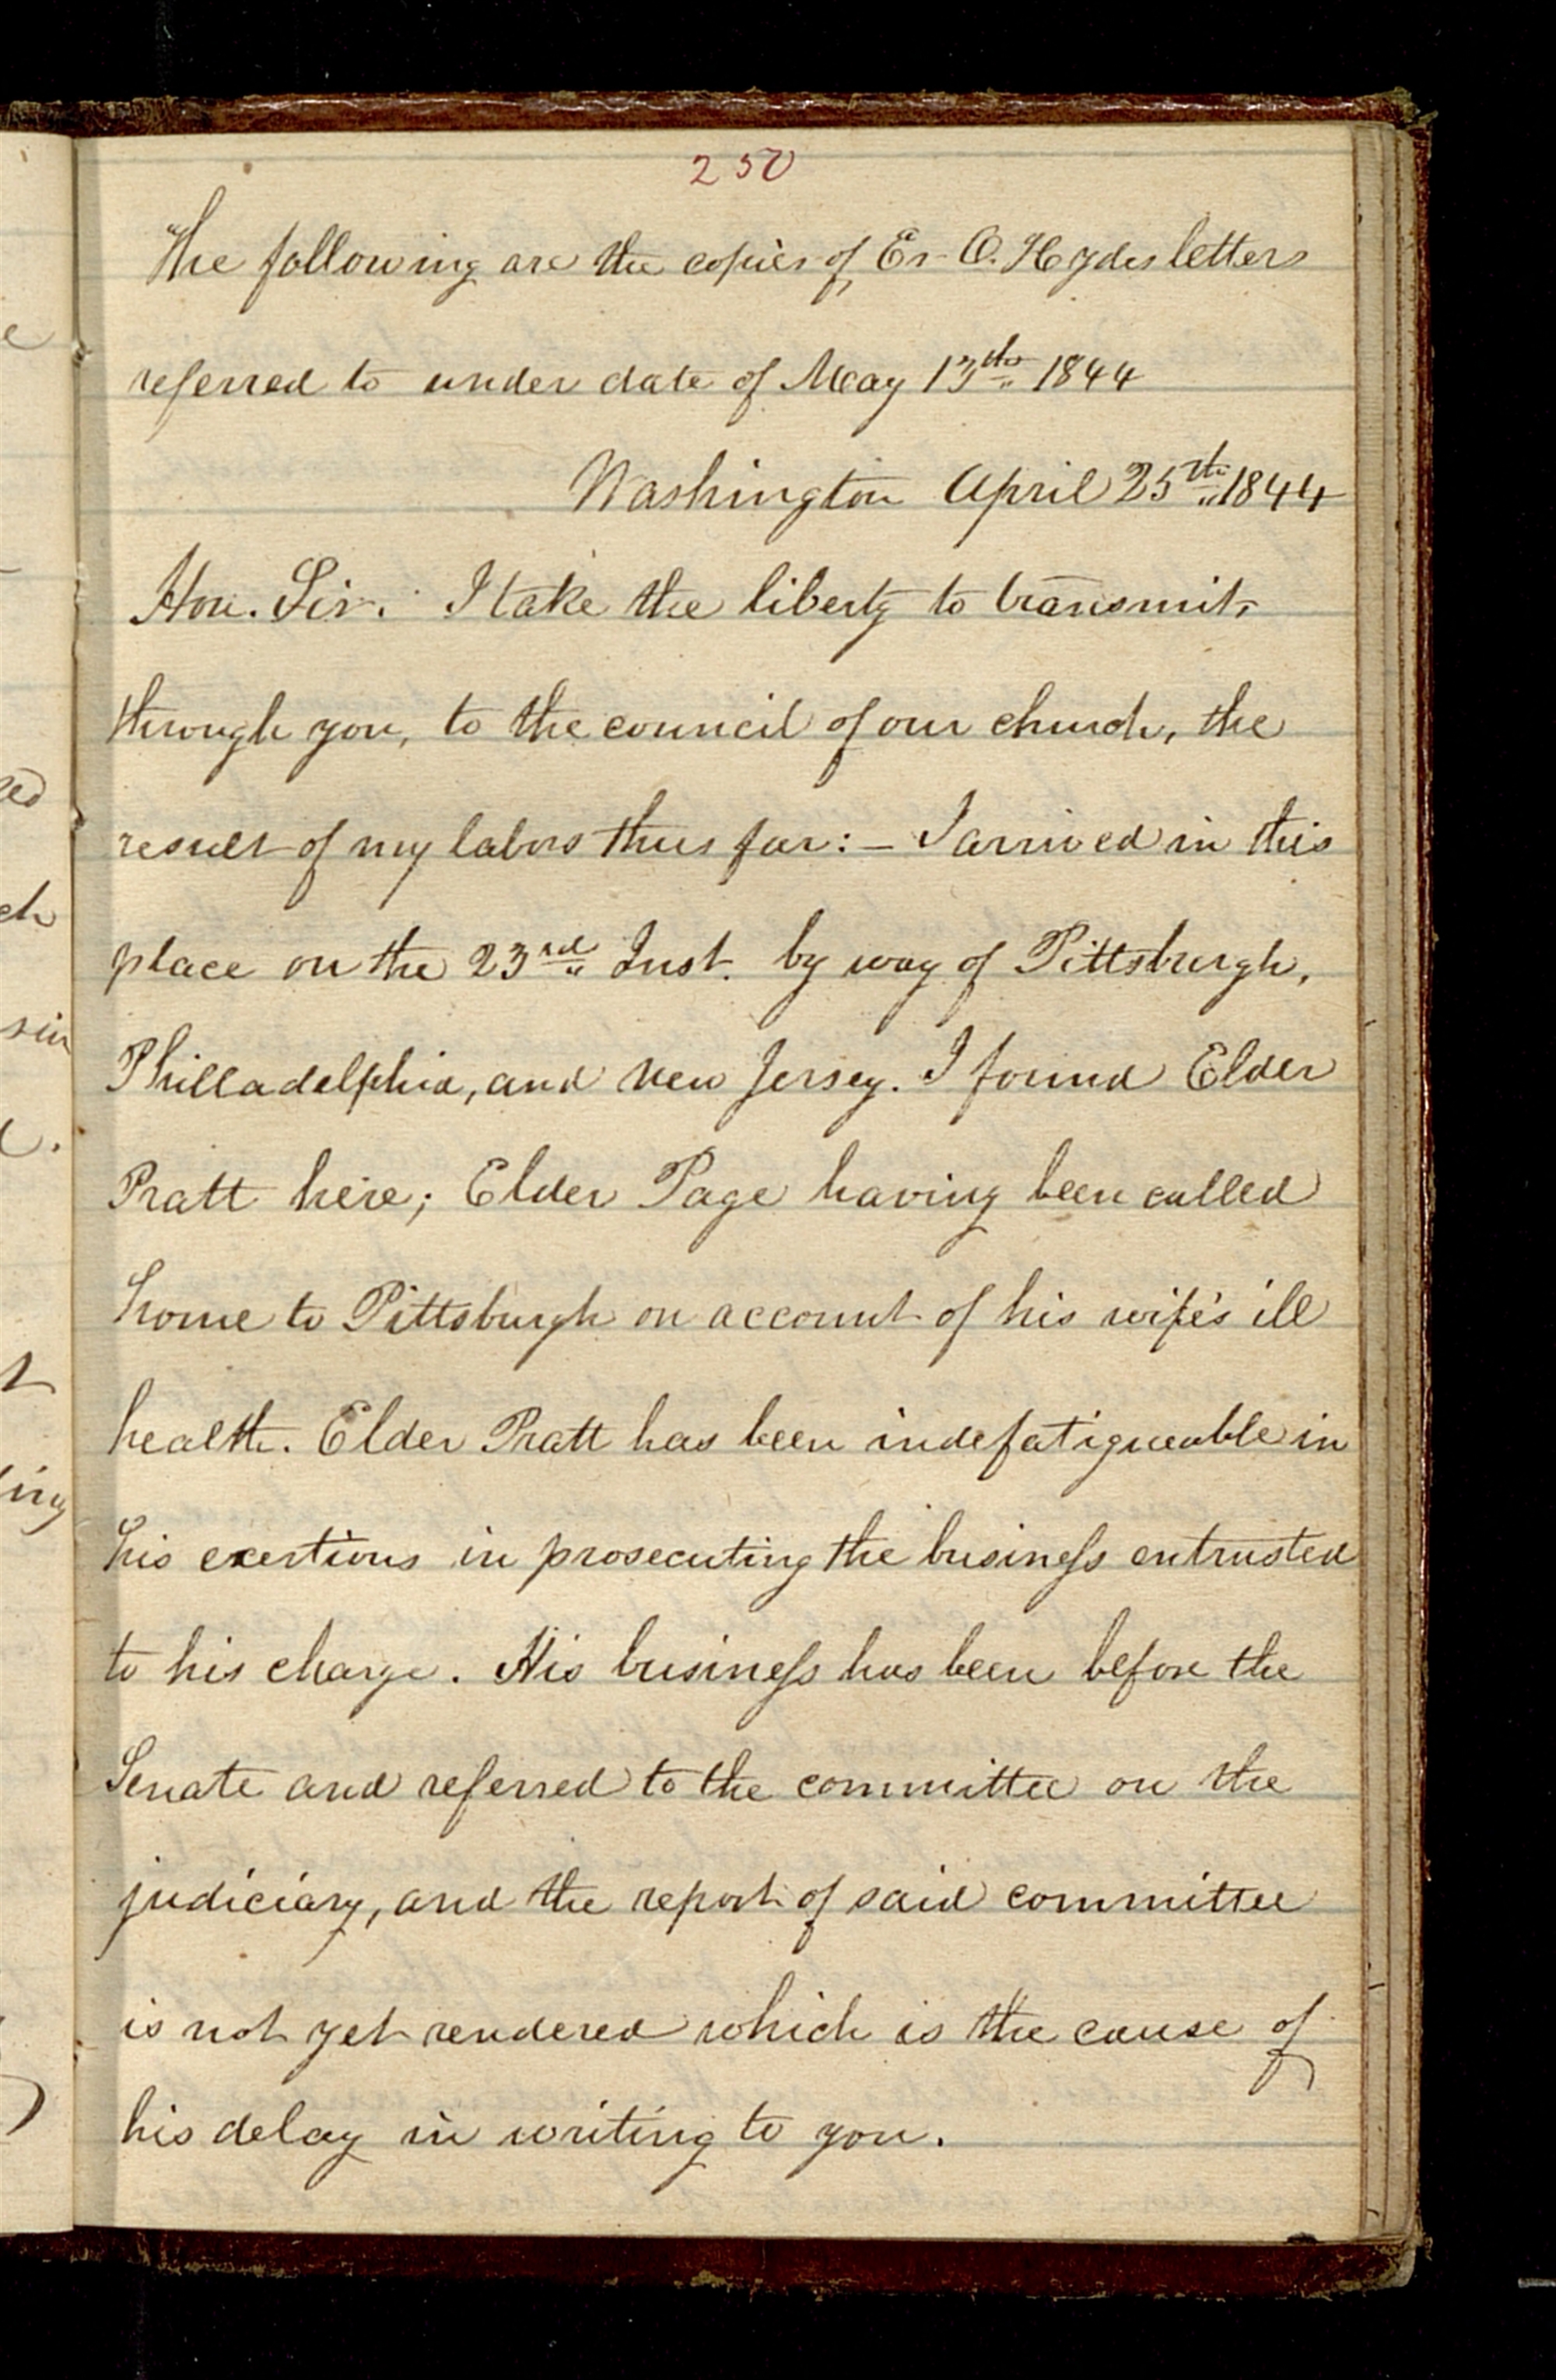 250
The following are the copies of Er. O. Hydes letters
referred to under date of May 13th 1844
Washington April 25th 1844
Hon. Sir. I take the liberty to transmit,
through you, to the council of our church, the
result of my labors thus far:— I arrived in this
place on the 23rd Inst. by way of Pittsburgh,
Philladelphia, and New Jersey. I found Elder
Pratt here; Elder Page having been called
home to Pittsburgh on account of his wife's ill
health. Elder Pratt has been indefatigueable in
his exertions in prosecuting the business entrusted
to his charge. His business has been before the
Senate and referred to the committee on the
judiciary, and the report of said committee
is not yet rendered which is the cause of
his delay in writing to you.